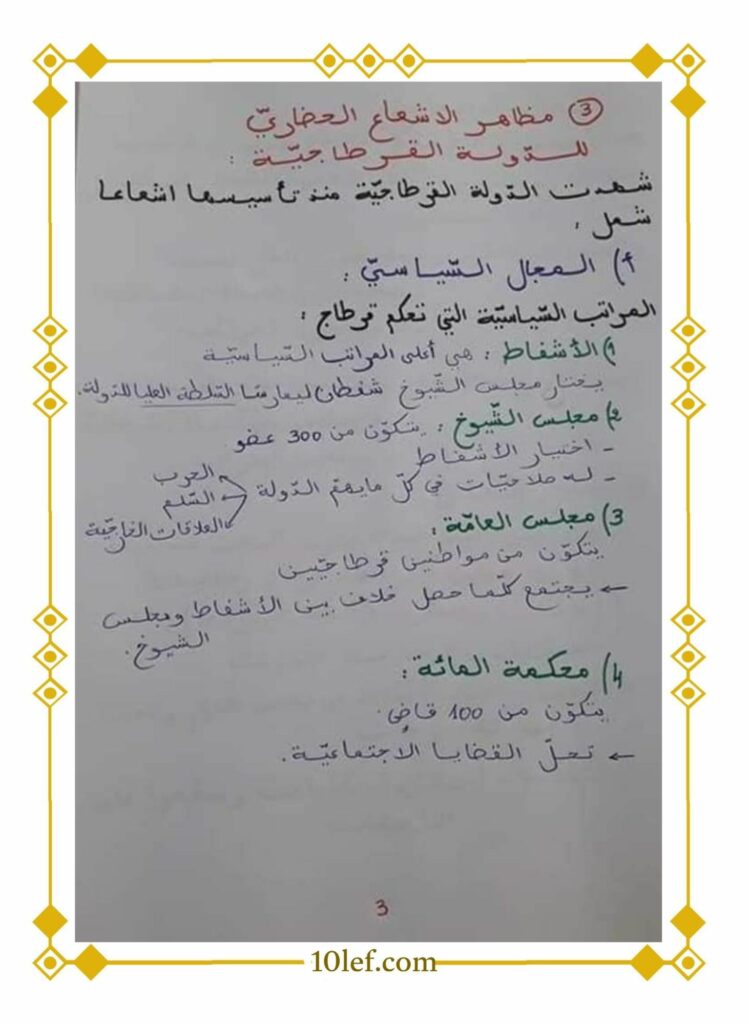 ③ مظاهر الاشعاع الحضاريّ
للدّولة القرطاجيّة :
شهدت الدّولة القرطاجيّة منذ تأسيسها اشعاعا
شمل :
أ) المجال السّياسيّ :
المراتب السّياسيّة التي تحكم قرطاج :
1) الأشفاط : هي أعلى المراتب السّياسيّة
يختار مجلس الشّيوخ شفطان ليمارسا السّلطة العليا للدّولة.
2) مجلس الشّيوخ : يتكوّن من 300 عضو
- اختيار الأشفاط
- له صلاحيّات في كلّ مايهمّ الدّولة
الحرب
السّلم
العلاقات الخارجيّة
3) مجلس العامّة :
يتكوّن من مواطنين قرطاجيّين
← يجتمع كلّما حصل خلاف بين الأشفاط ومجلس
الشيوخ.
4) محكمة المائة :
يتكوّن من 100 قاضٍ.
← تحلّ القضايا الاجتماعيّة.
3
10lef.com